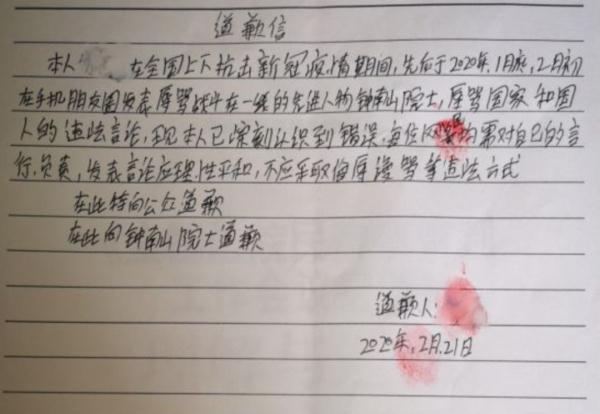 道歉信
本人 在全国上下抗击新冠疫情期间,先后于2020年.1月底,2月初
在手机朋友圈发表辱骂战斗在一线的先进人物钟南山院士,辱骂国家和国
人的违法言论,现本人已深刻认识到错误.每位网民均需对自己的言
行.负责,发表言论应理性平和,不应采取侮辱谩骂等违法方式
在此特向公众道歉
在此向钟南山院士道歉
道歉人:
2020年.2月.21日